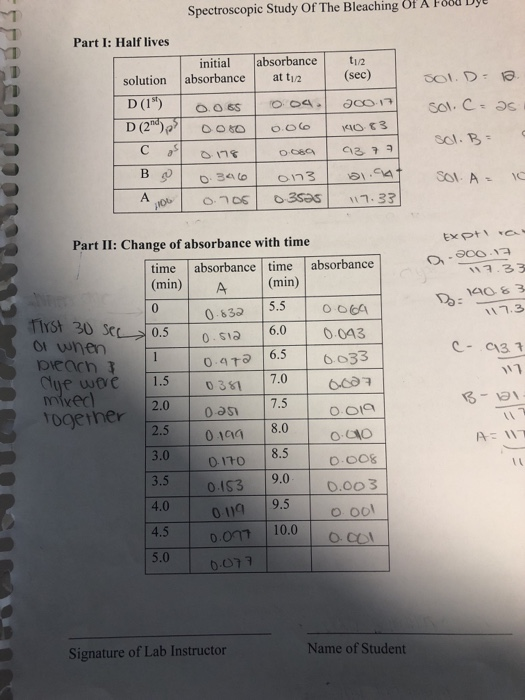 Spectroscopic Study Of The Bleaching Of A Food Dye
Part I: Half lives
solution initial absorbance absorbance at t1/2 t1/2 (sec)
D (1st) 0.04 200.17
D (2nd) 0.06 140.83
C 0.178 0.089
B 0.346 0.173
A 0.705 0.3525 117.33
Sol. D =
Sol. C = 25
Sol. B =
Sol. A = 10
Part II: Change of absorbance with time
time (min) absorbance A time (min) absorbance
0 0.832 5.5 0.064
0.5 0.512 6.0 0.043
1 0.472 6.5 0.033
1.5 0.381 7.0
2.0 0.251 7.5 0.019
2.5 0.199 8.0 0.010
3.0 0.170 8.5 0.008
3.5 0.153 9.0 0.003
4.0 0.119 9.5 0.001
4.5 0.097 10.0 0.001
5.0 0.077
First 30 sec
of when
bleach &
dye were
mixed
together
Exptl
D1 - 200.17
117.33
D2 = 140.83
117.3
C - 93.7
117
B - 121.
117
A = 117
11
Signature of Lab Instructor Name of Student